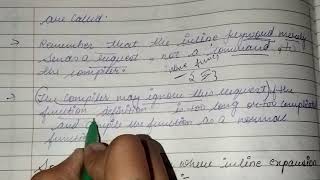 are called.
→ Remember that the inline keyword merely
sends a request, not a command to
the compiler.
→ The compiler may ignore this request if the
function definition is too long or too complicated
and compile the function as a normal
function
where inline expansion